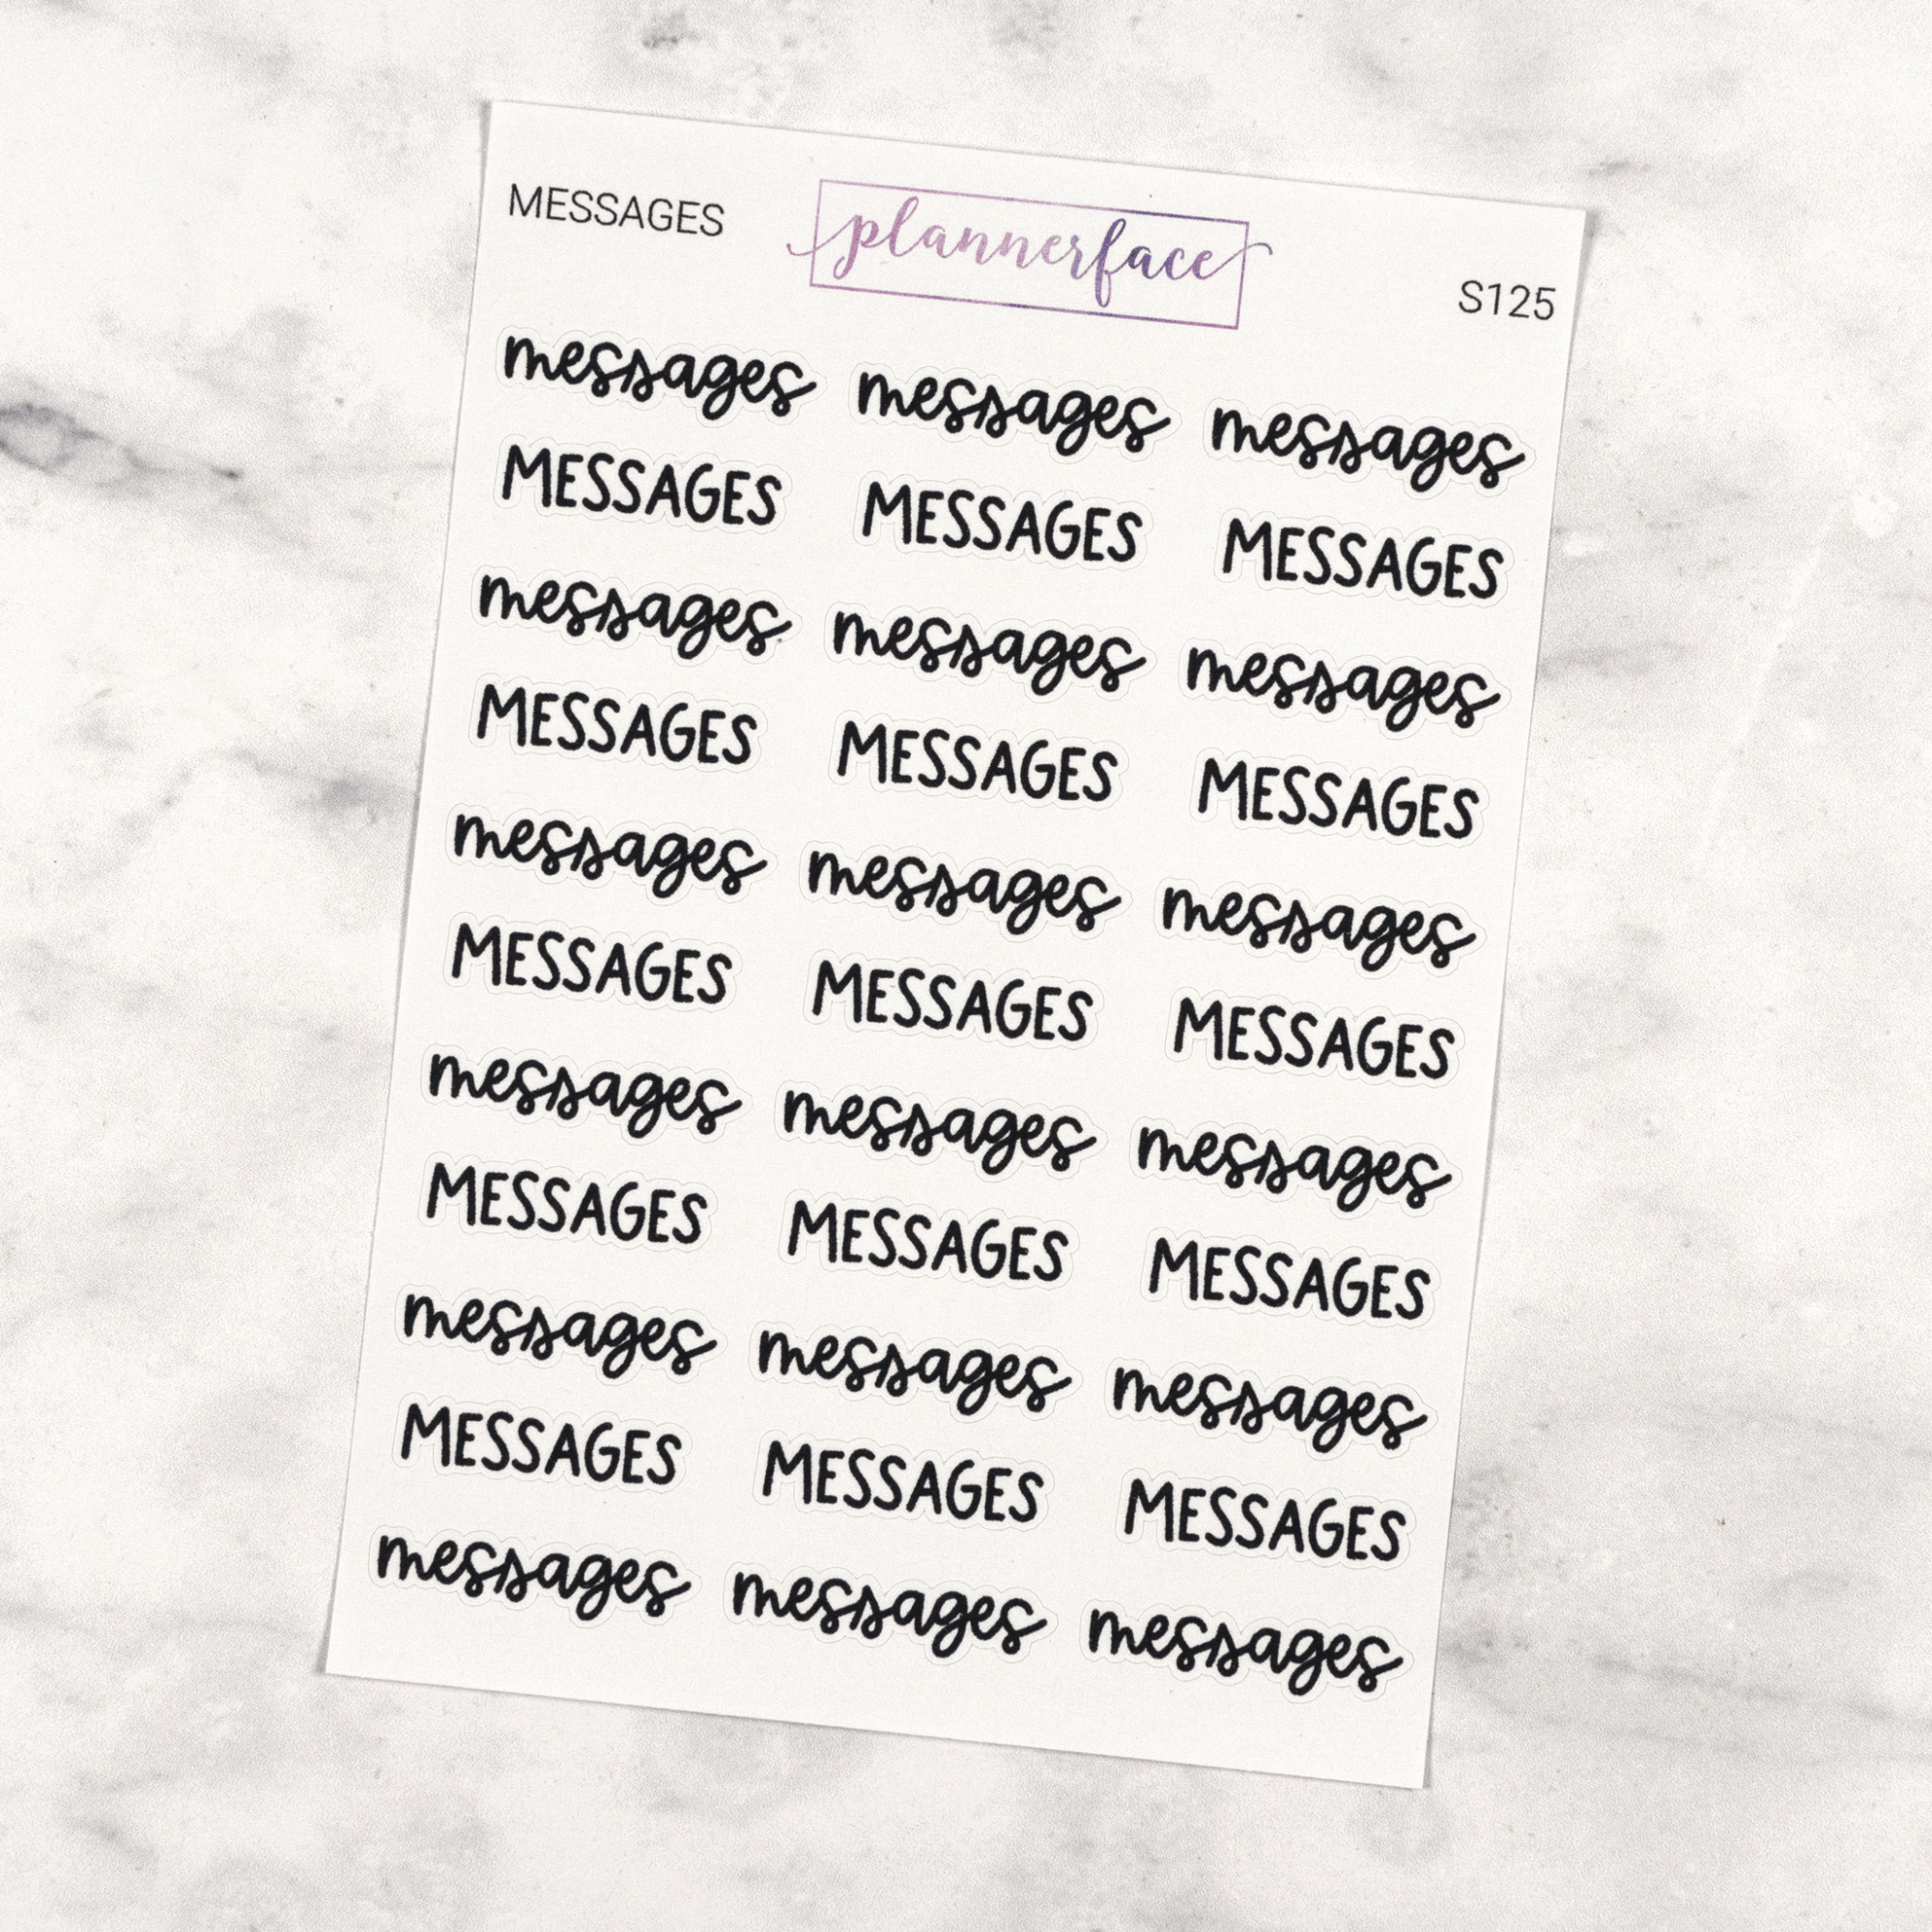 MESSAGES plannerface S125
messages messages messages
MESSAGES MESSAGES MESSAGES
messages messages messages
MESSAGES MESSAGES MESSAGES
messages messages messages
MESSAGES MESSAGES MESSAGES
messages messages messages
MESSAGES MESSAGES MESSAGES
messages messages messages
MESSAGES MESSAGES MESSAGES
messages messages messages